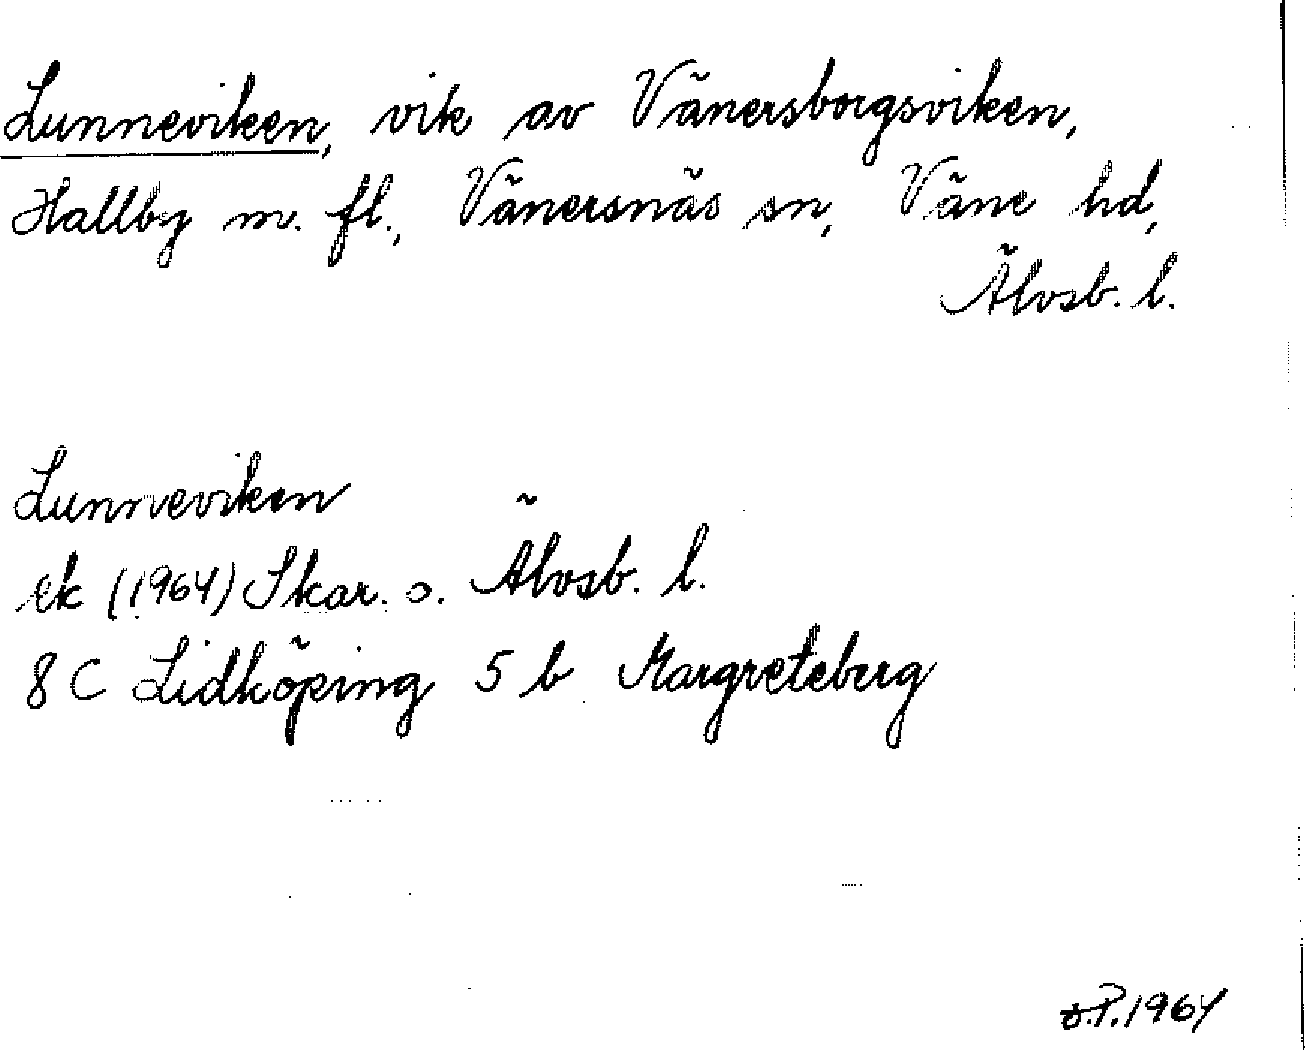 Lunneviken, vik av Vänersborgsviken,
Hallby m. fl., Vänersnäs sn, Väne hd,
Älvsb. l.
Lunneviken
ek (1964) Skar. o. Älvsb. l.
8 C Lidköping 5 b Margreteberg
P. 1964